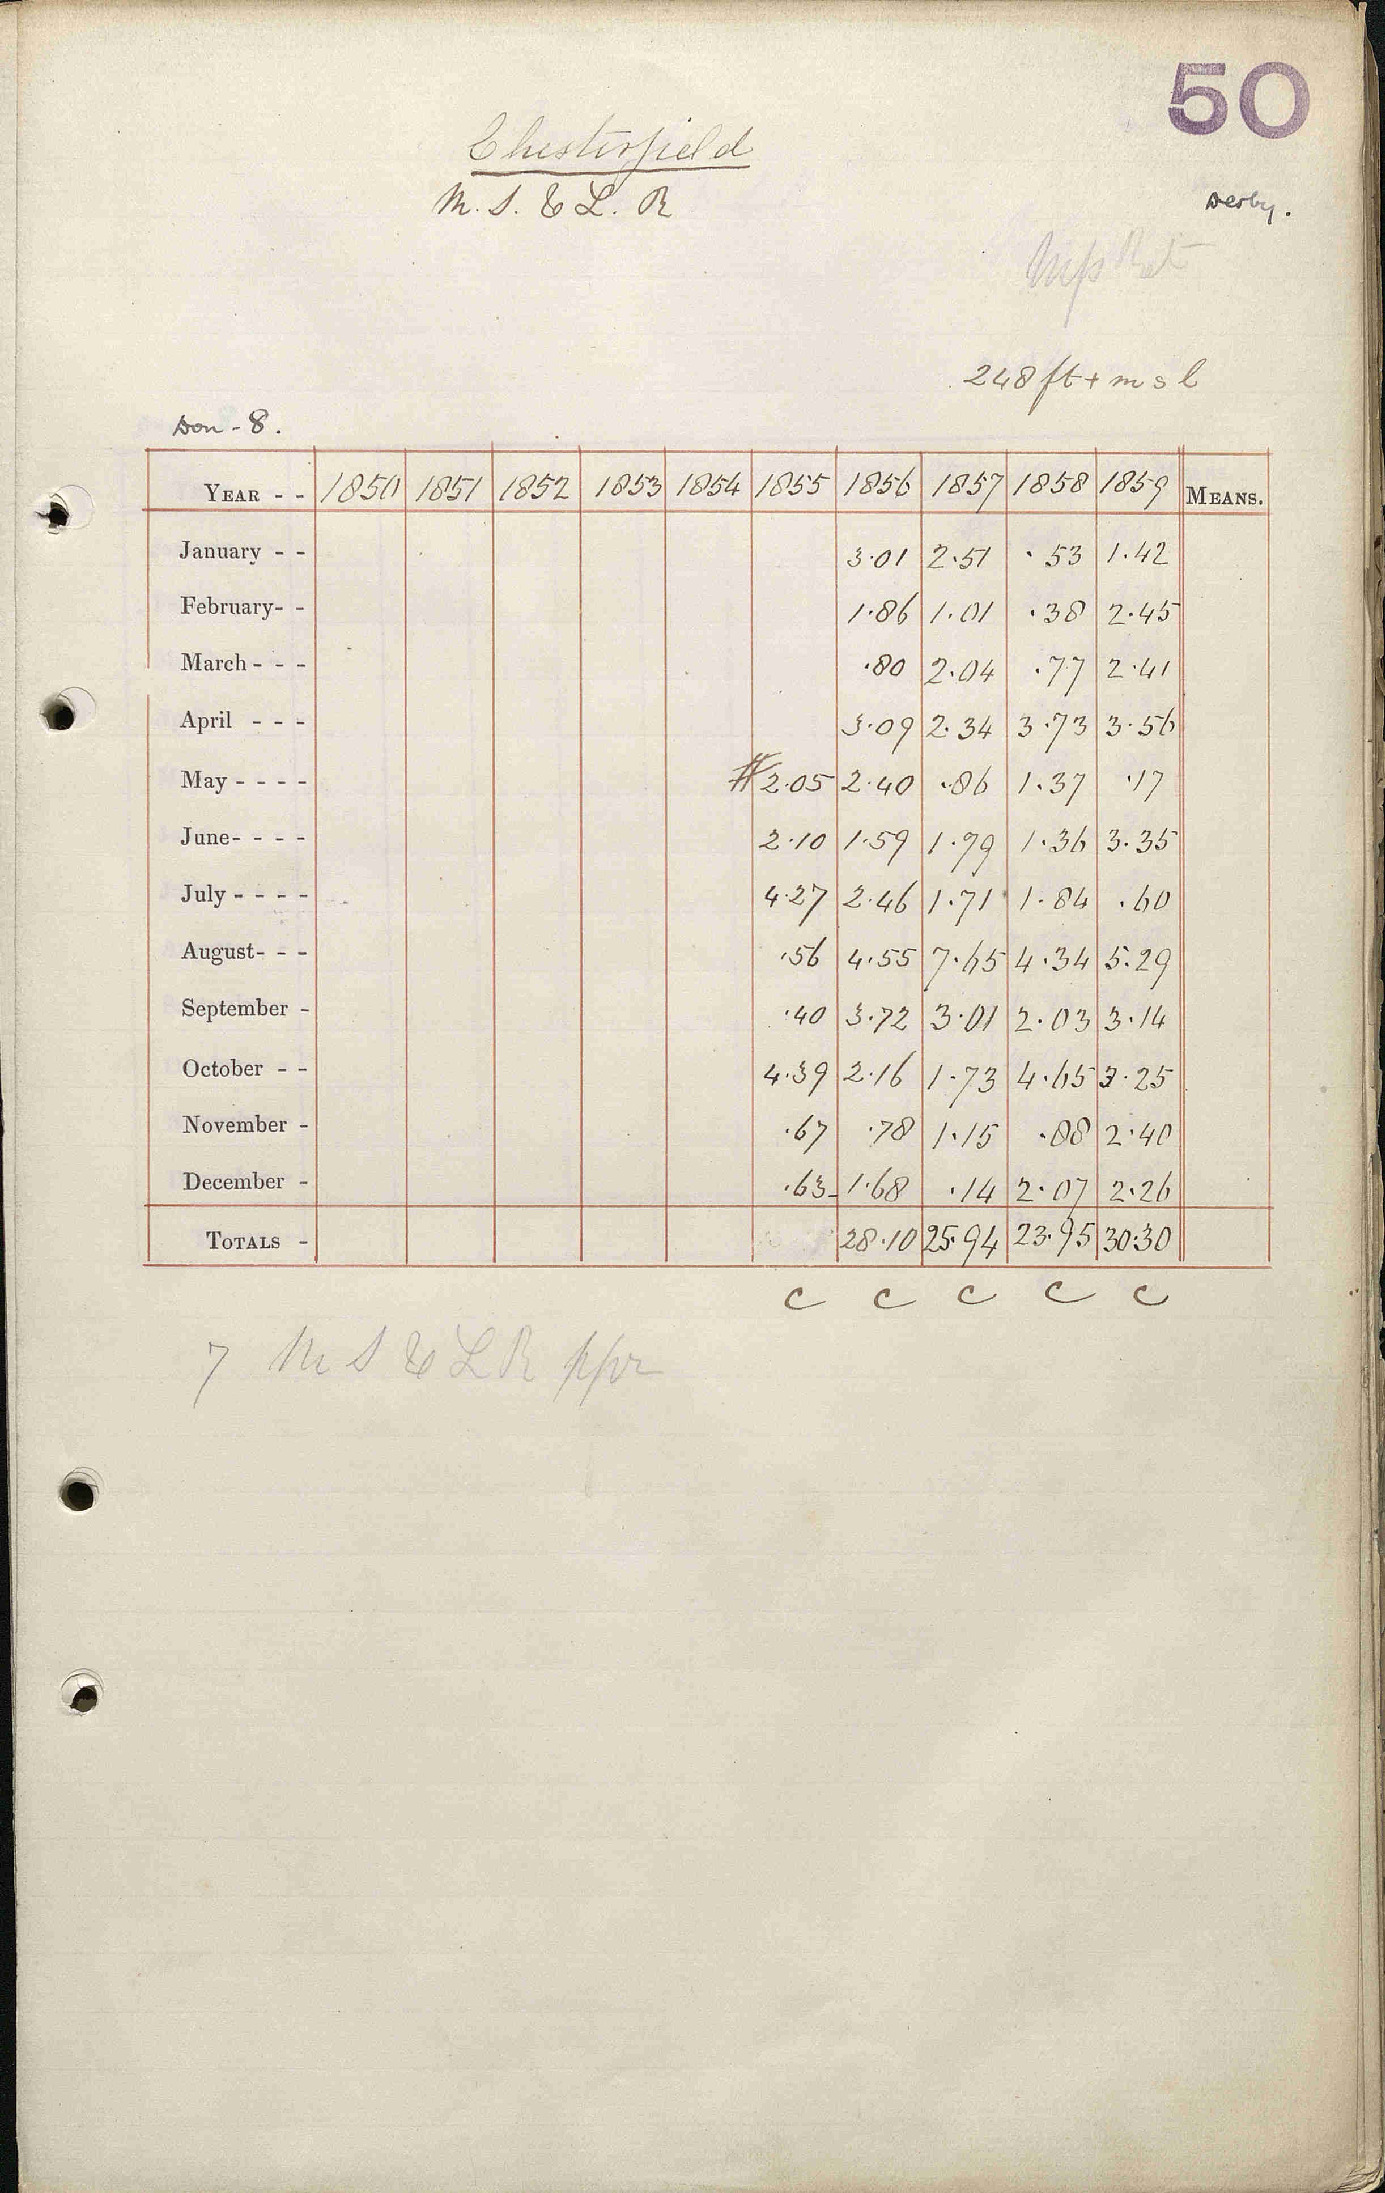 50
Chesterfield
M. S. & L. R
Derby.
248 ft + m s l
Don - 8.
YEAR - - 1850 1851 1852 1853 1854 1855 1856 1857 1858 1859 MEANS.
January - - 3.01 2.51 .53 1.42
February- - 1.86 1.01 .38 2.45
March - - - .80 2.04 .77 2.41
April - - - 3.09 2.34 3.73 3.56
May - - - - # 2.05 2.40 .86 1.37 .17
June- - - - 2.10 1.59 1.79 1.36 3.35
July - - - - 4.27 2.46 1.71 1.84 .60
August- - - .56 4.55 7.65 4.34 5.29
September - .40 3.72 3.01 2.03 3.14
October - - 4.39 2.16 1.73 4.65 3.25
November - .67 .78 1.15 .88 2.40
December - .63 1.68 .14 2.07 2.26
TOTALS - 28.10 25.94 23.95 30.30
C C C C C
7 M S & L R ppr